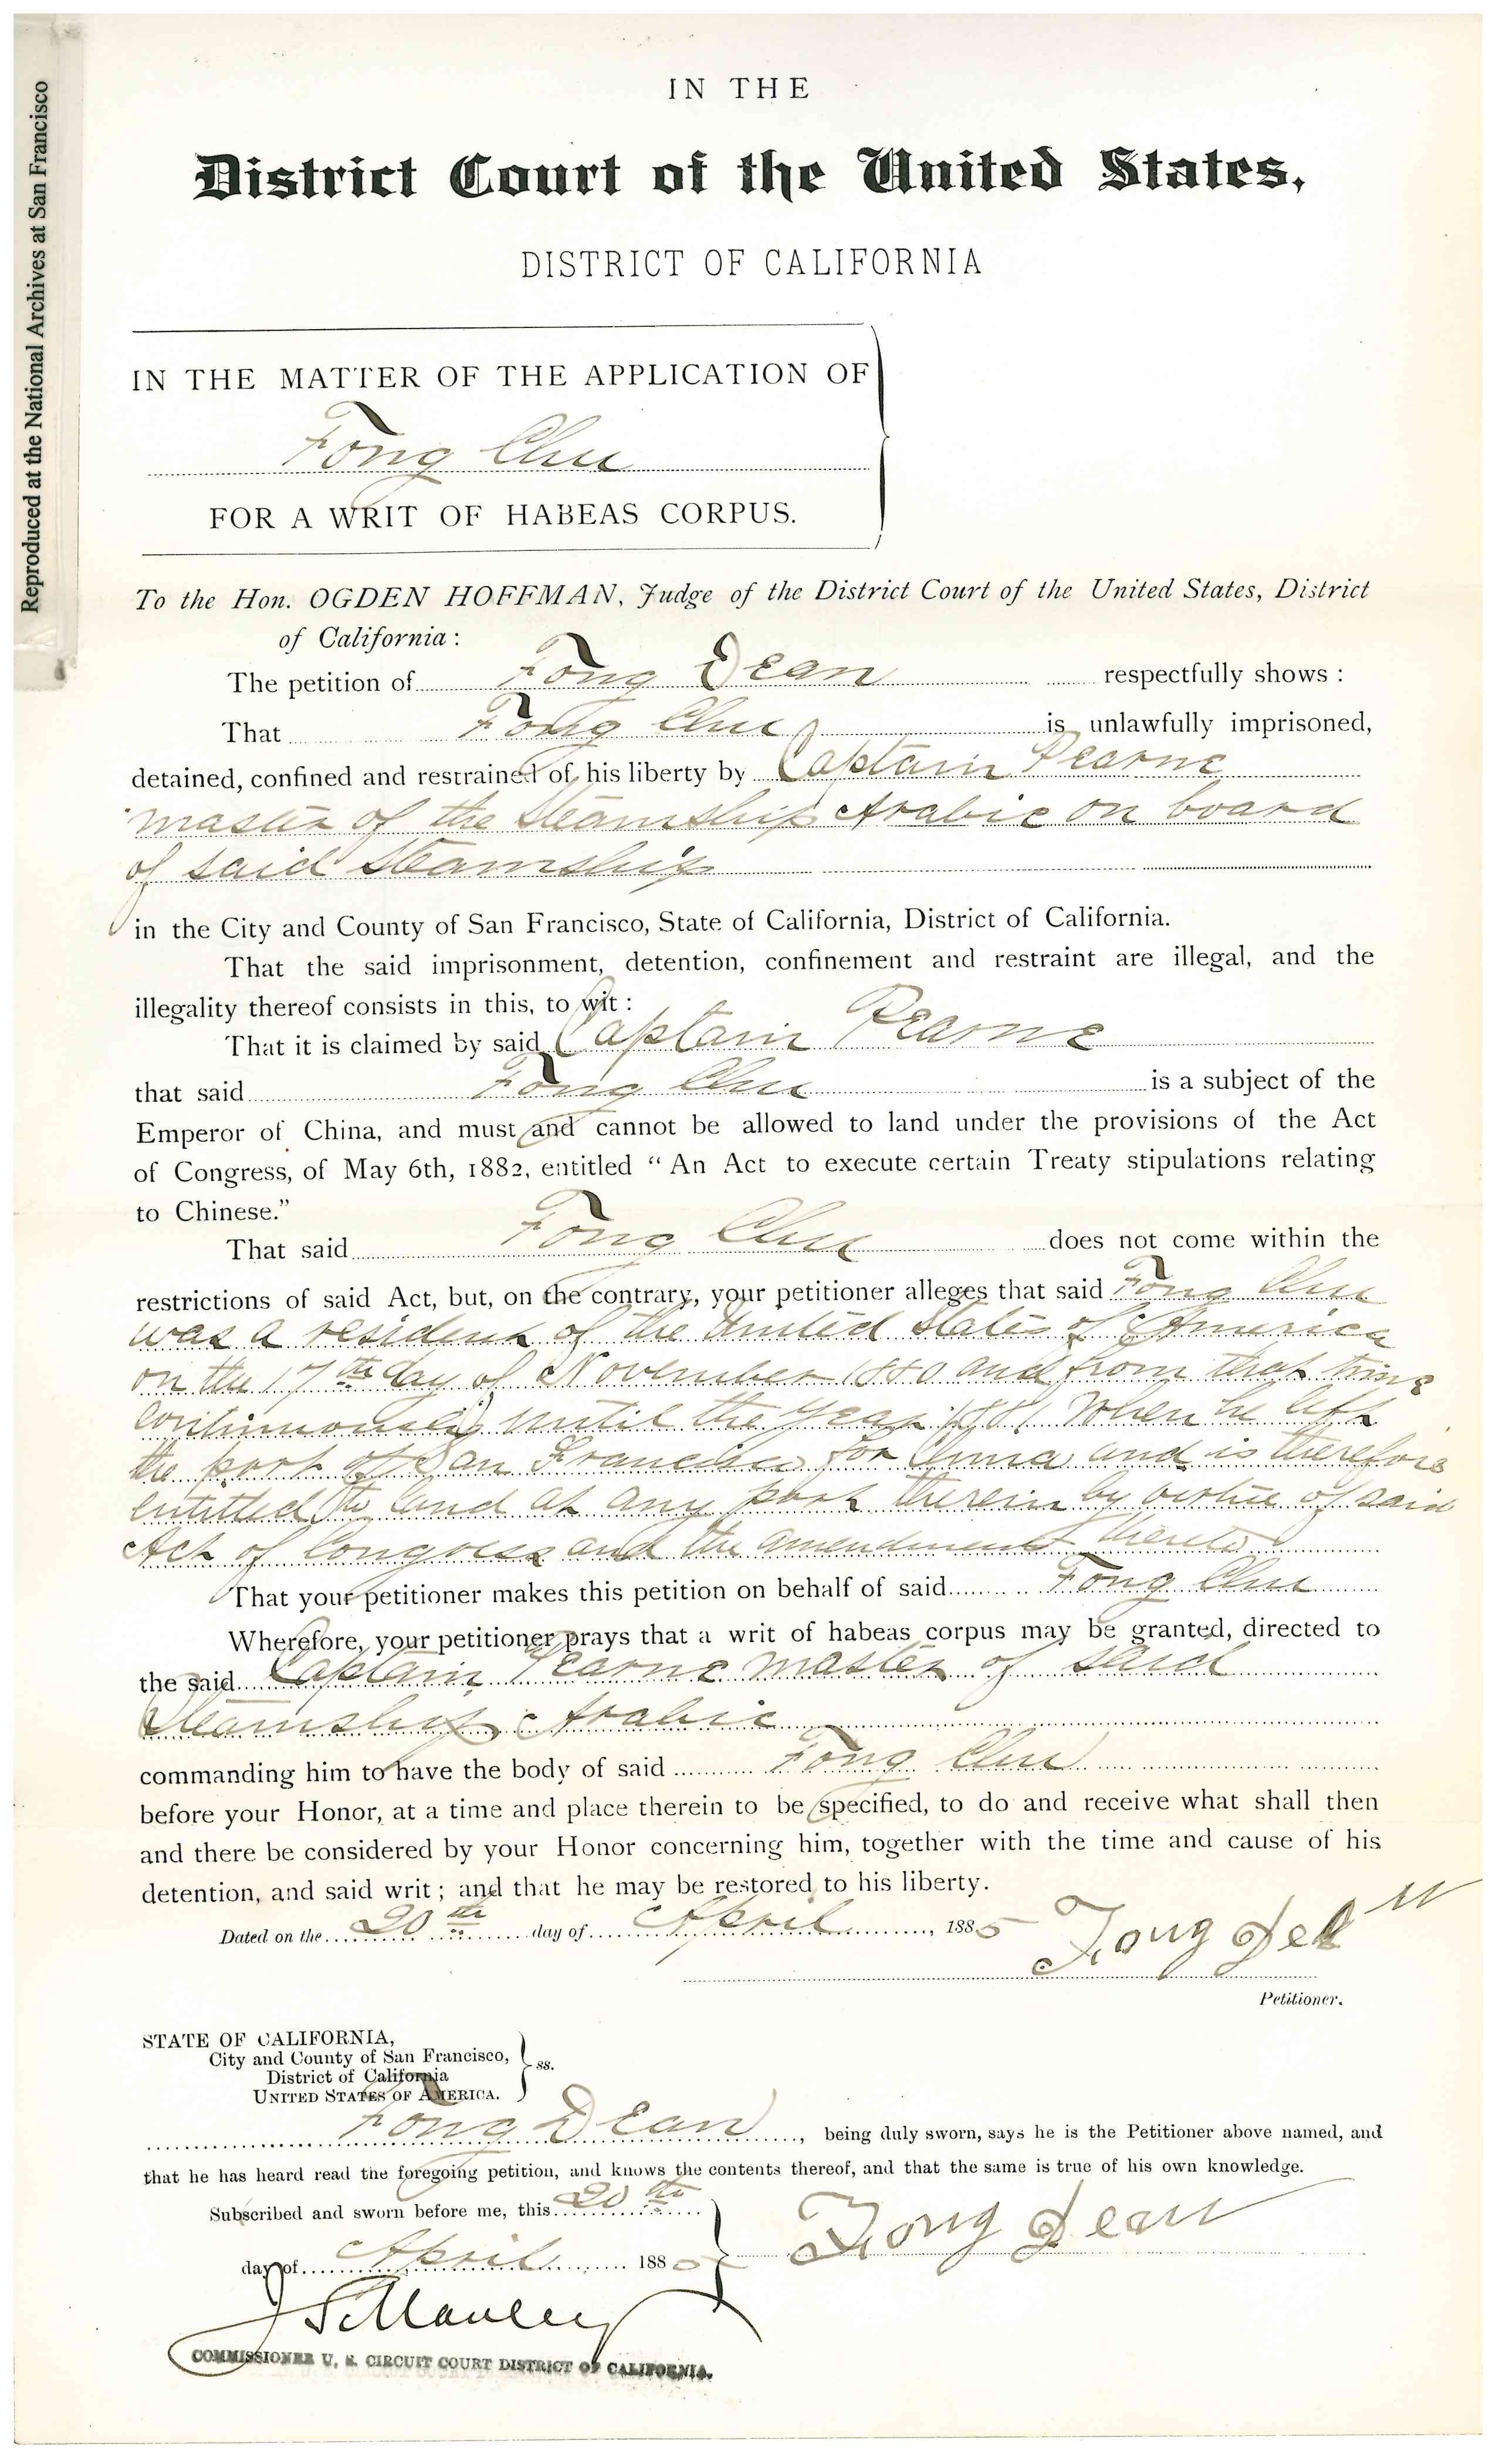 Reproduced at the National Archives at San Francisco
IN THE
District Court of the United States,
DISTRICT OF CALIFORNIA
IN THE MATTER OF THE APPLICATION OF
Fong Chu
FOR A WRIT OF HABEAS CORPUS.
To the Hon. OGDEN HOFFMAN, Judge of the District Court of the United States, District
of California:
The petition of Fong Dean respectfully shows:
That Fong Chu is unlawfully imprisoned,
detained, confined and restrained of his liberty by Captain Pearne
master of the Steamship Arabic on board
of said Steamship
in the City and County of San Francisco, State of California, District of California.
That the said imprisonment, detention, confinement and restraint are illegal, and the
illegality thereof consists in this, to wit:
That it is claimed by said Captain Pearne
that said Fong Chu is a subject of the
Emperor of China, and must and cannot be allowed to land under the provisions of the Act
of Congress, of May 6th, 1882, entitled "An Act to execute certain Treaty stipulations relating
to Chinese."
That said Fong Chu does not come within the
restrictions of said Act, but, on the contrary, your petitioner alleges that said Fong Chu
was a resident of the United States of America
on the 17th day of November 1880 and from that time
continuously until the year 1881 when he left
the port of San Francisco for China and is therefore
entitled to land at any port therein by virtue of said
Act of Congress and the amendment thereto
That your petitioner makes this petition on behalf of said Fong Chu
Wherefore, your petitioner prays that a writ of habeas corpus may be granted, directed to
the said Captain Pearne master of said
Steamship Arabic
commanding him to have the body of said Fong Chu
before your Honor, at a time and place therein to be specified, to do and receive what shall then
and there be considered by your Honor concerning him, together with the time and cause of his
detention, and said writ; and that he may be restored to his liberty.
Dated on the 20th day of April, 1885 Fong Dean
Petitioner.
STATE OF CALIFORNIA,
City and County of San Francisco, ss.
District of California
UNITED STATES OF AMERICA.
Fong Dean, being duly sworn, says he is the Petitioner above named, and
that he has heard read the foregoing petition, and knows the contents thereof, and that the same is true of his own knowledge.
Subscribed and sworn before me, this 20th
day of April 1885 Fong Dean
COMMISSIONER U. S. CIRCUIT COURT DISTRICT OF CALIFORNIA.